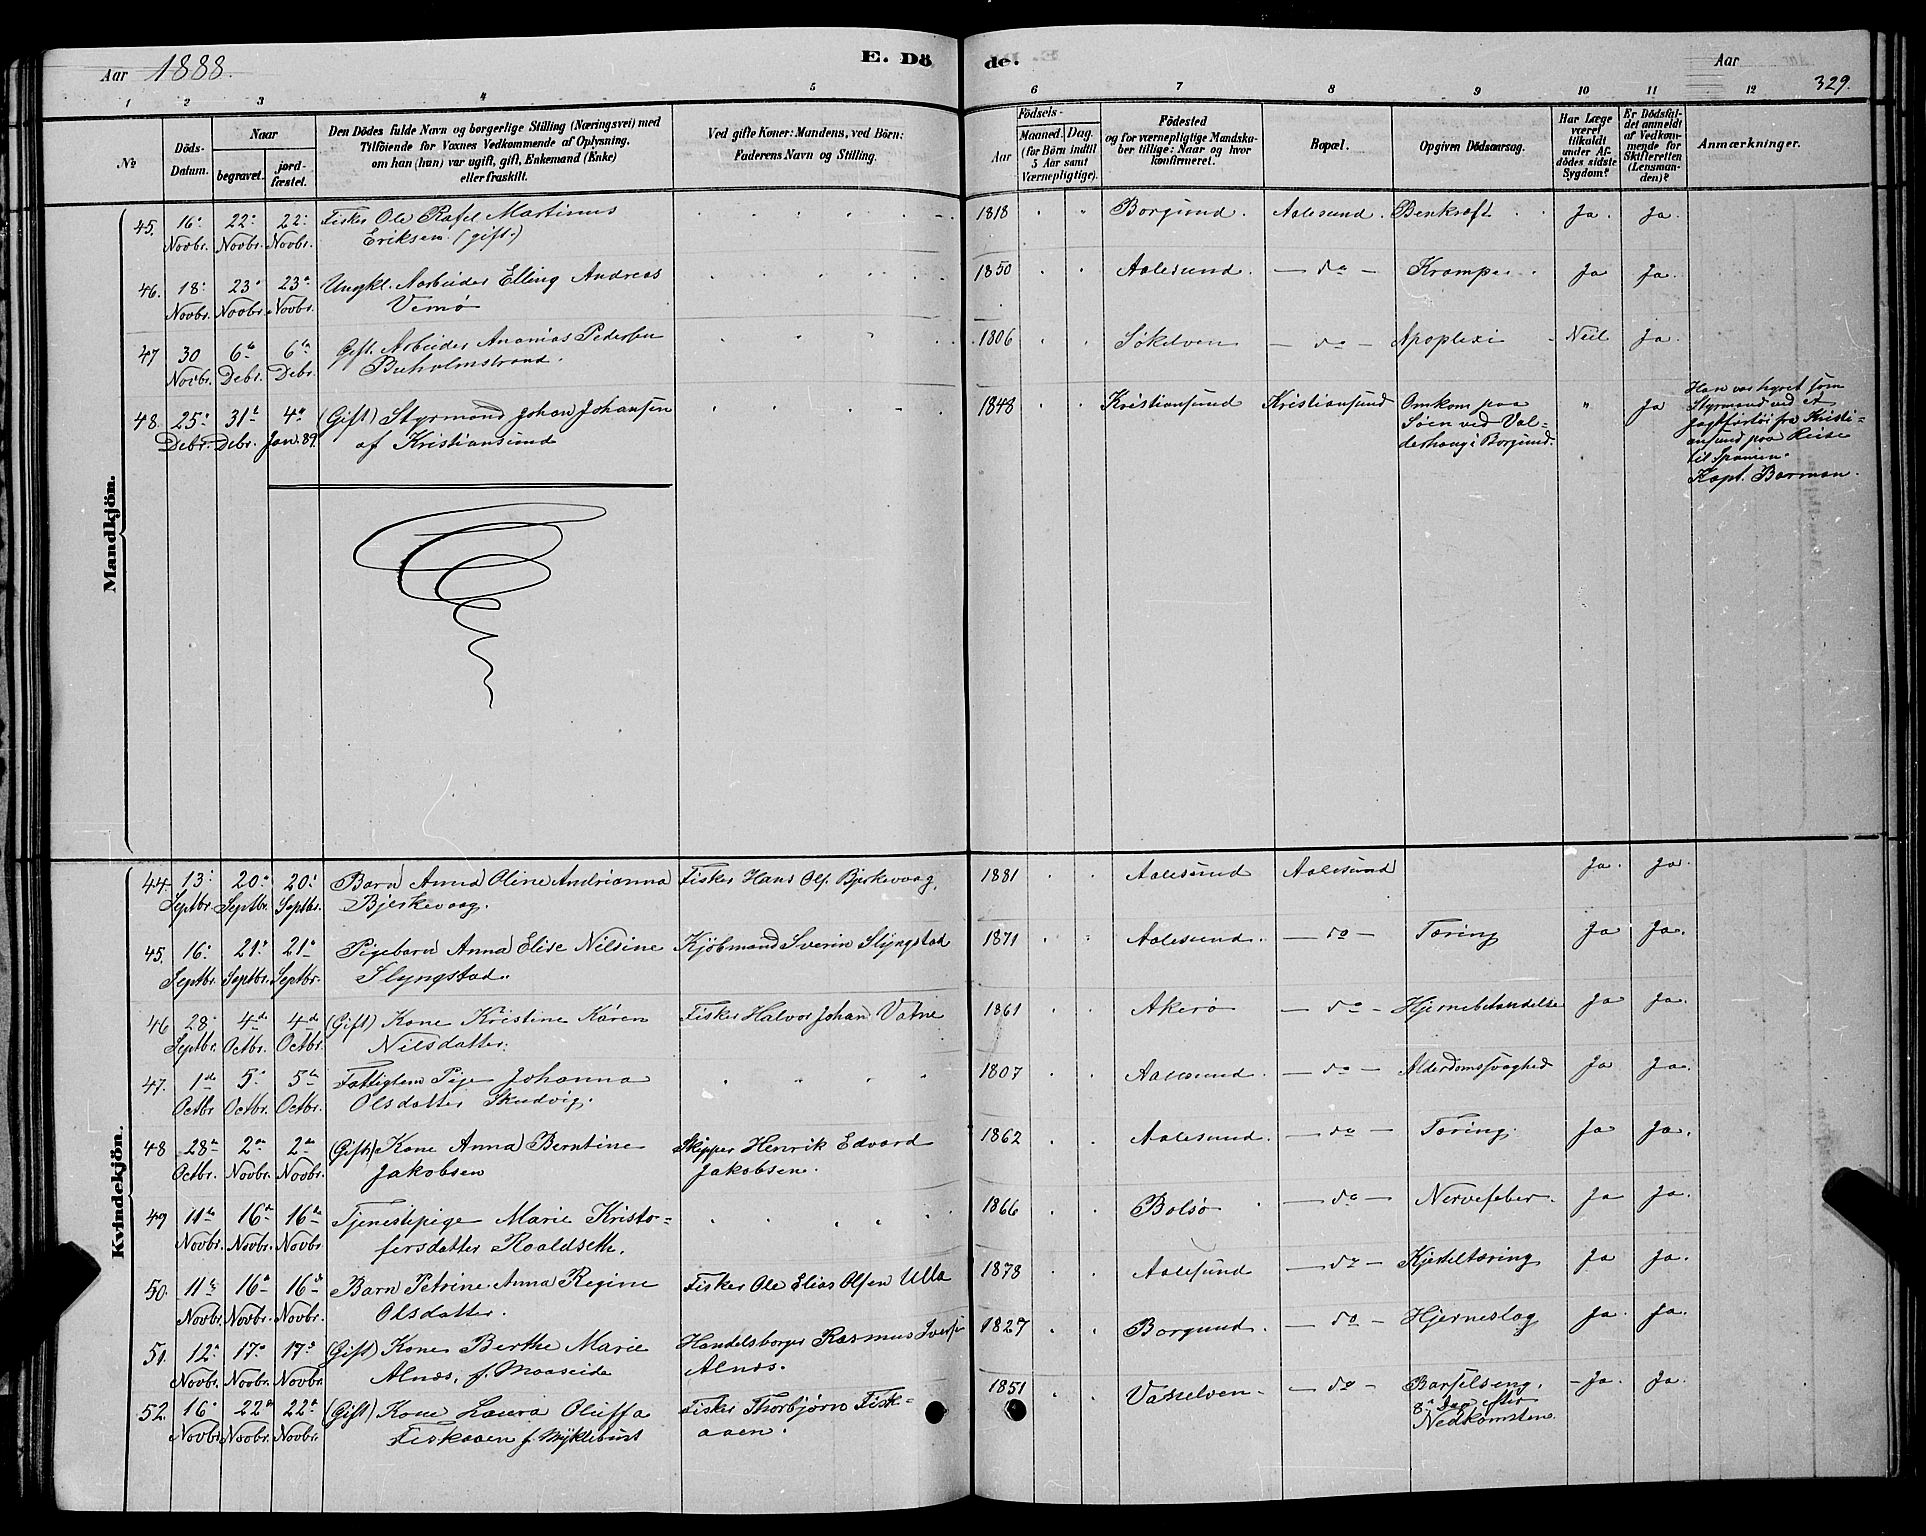 Aar 1888.
E. Dö
de.
Aar
329.
1 2 3 4 5 6 7 8 9 10 11 12
No
Döds-
Datum.
Naar
begravet.
jord-
fæstet.
Den Dödes fulde Navn og borgerlige Stilling (Næringsvei) med
Tilföiende for Voxnes Vedkommende af Oplysning,
om han (hun) var ugift, gift, Enkemand (Enke)
eller fraskilt.
Ved gifte Koner: Mandens, ved Börn:
Faderens Navn og Stilling.
Födsels-
Aar
Maaned. Dag.
(for Börn indtil
5 Aar samt
Værnepligtige).
Födested
og for værnepligtige Mandska-
ber tillige: Naar og hvor
konfirmeret.
Bopæl.
Opgiven Dödsaarsag.
Har Læge
været
tilkaldt
under Af-
dödes sidste
Sygdom?
Er Dödsfal-
det anmeldt
af Vedkom-
mende for
Skifteretten
(Lensman-
den)?
Anmærkninger.
Mandkjön.
45. 16. 22. 22. Fisker Ole Rafel Martinus 1818 Borgund. Aalesund. Benkræft Ja. Ja.
Novbr. Novbr. Novbr. Eriksen (gift.)
46. 18. 23. 23. Ungkl. Arbeider Elling Andreas 1850 Aalesund. — do — Krampe Ja Ja.
Novbr. Novbr. Novbr. Vemø
47 30 6te 6te Gift. Arbeider Ananias Pedersen 1806 Søkelven — do — Apoplexi Neil Ja.
Novbr. Debr. Debr. Buholmstrand.
48. 25. 31te 4de (Gift) Styrmand Johan Johansen 1848 Kristiansund Kristiansund Omkom paa " Ja
Debr. Debr. Jan. 89. af Kristiansund
Søen ved Val-
derhaug i Borgund.
Han var hyret som
Styrmand ved et
Jagtfartøi fra Kristi-
ansund paa Reise
til Spanien.
Kapt. Barman.
Kvindekjön.
44. 13. 20. 20. Barn Anna Oline Andrianna Fisker Hans Ols. Bjerkevaag. 1881 Aalesund Aalesund Ja. Ja.
Septbr. Septbr. Septbr. Bjerkevaag.
45. 16. 21. 21. Pigebarn Anna Elise Nilsine Kjøbmand Sverin Slyngstad 1871 Aalesund. — do — Tæring Ja Ja.
Septbr. Septbr. Septbr. Slyngstad.
46 28. 4de 4de (Gift) Kone Kristine Karen Fisker Halvor Johan Vatne 1861 Akerø — do — Hjernebetændelse Ja Ja.
Septbr. Octbr. Octbr. Nilsdatter.
47. 1de 5. 5te Fattiglem Pige Johanna 1807 Aalesund. — do — Alderdomssvaghed Ja Ja.
Octbr. Octbr. Octbr. Olsdatter Skudvig.
48 28de 2den 2den (Gift) Kone Anna Berntine Skipper Henrik Edvard 1862 Aalesund. — do — Tæring. Ja Ja.
Octbr. Novbr. Novbr. Jakobsen Jakobsen.
49 11te 16de 16de Tjenestepige Marie Kristo- 1866 Bolsø — do — Nervefeber. Ja Ja.
Novbr. Novbr. Novbr. fersdatter Roaldseth.
50. 11te 16de 16de Barn Petrine Anna Regine Fisker Ole Elias Olsen Ulla 1878 Aalesund — do — Kjerteltæring Ja Ja.
Novbr. Novbr. Novbr. Olsdatter.
51. 12. 17. 17. (Gift) Kone Berthe Marie Handelsborger Rasmus 1827 Borgund. — do — Hjerneslag Ja. Ja.
Novbr. Novbr. Novbr. Alnæs, f. Maaseide Alnæs.
52. 16. 22de 22de (Gift) Kone Laura Oluffa Fisker Thorbjørn Fisk- 1851 Vatselven. — do — Barselseng, Ja. Ja.
Novbr. Novbr. Novbr. Fiskaaen f. Myklebust aaen.
8de Dag efter
Nedkomsten.